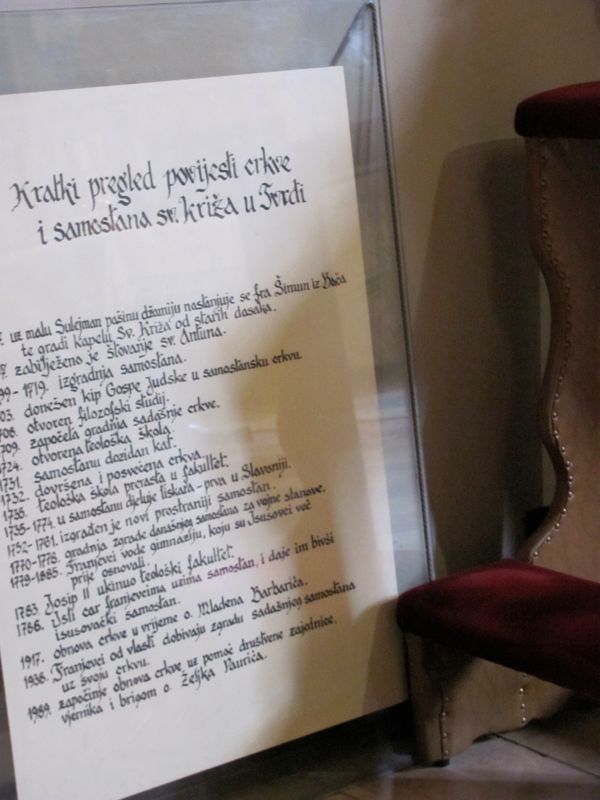 Kratki pregled povijesti crkve
i samostana sv. križa u Tvrđi
uz malu Sulejman pašinu džamiju nastanjuje se fra Šimun iz
te gradi kapelu Sv. Križa od starih dasaka.
zabilježeno je štovanje sv. Antuna.
99-1719. izgradnja samostana.
03. donešen kip Gospe Judske u samostansku crkvu.
706. otvoren filozofski studij.
709. započeta gradnja sadašnje crkve.
1724. otvorena teološka škola.
1731. samostanu dozidan kat.
1732. dovršena i posvećena crkva.
1735. teološka škola prerasta u fakultet.
1735-1774. u samostanu djeluje tiskara - prva u Slavoniji.
1752-1761. izgrađen je novi prostraniji samostan.
1770-1776. gradnja zgrade današnjeg samostana za vojne stanove.
1779-1885. Franjevci vode gimnaziju, koju su Isusovci već
prije osnovali.
1783. Josip II ukinuo teološki fakultet.
1786. Isti car franjevcima uzima samostan, i daje im bivši
isusovački samostan.
1917. obnova crkve u vrijeme o. Mladena Barbarića.
1938. Franjevci od vlasti dobivaju zgradu sadašnjeg samostana
uz svoju crkvu.
1989. započinje obnova crkve uz pomoć društvene zajednice,
vjernika i brigom o. Željka